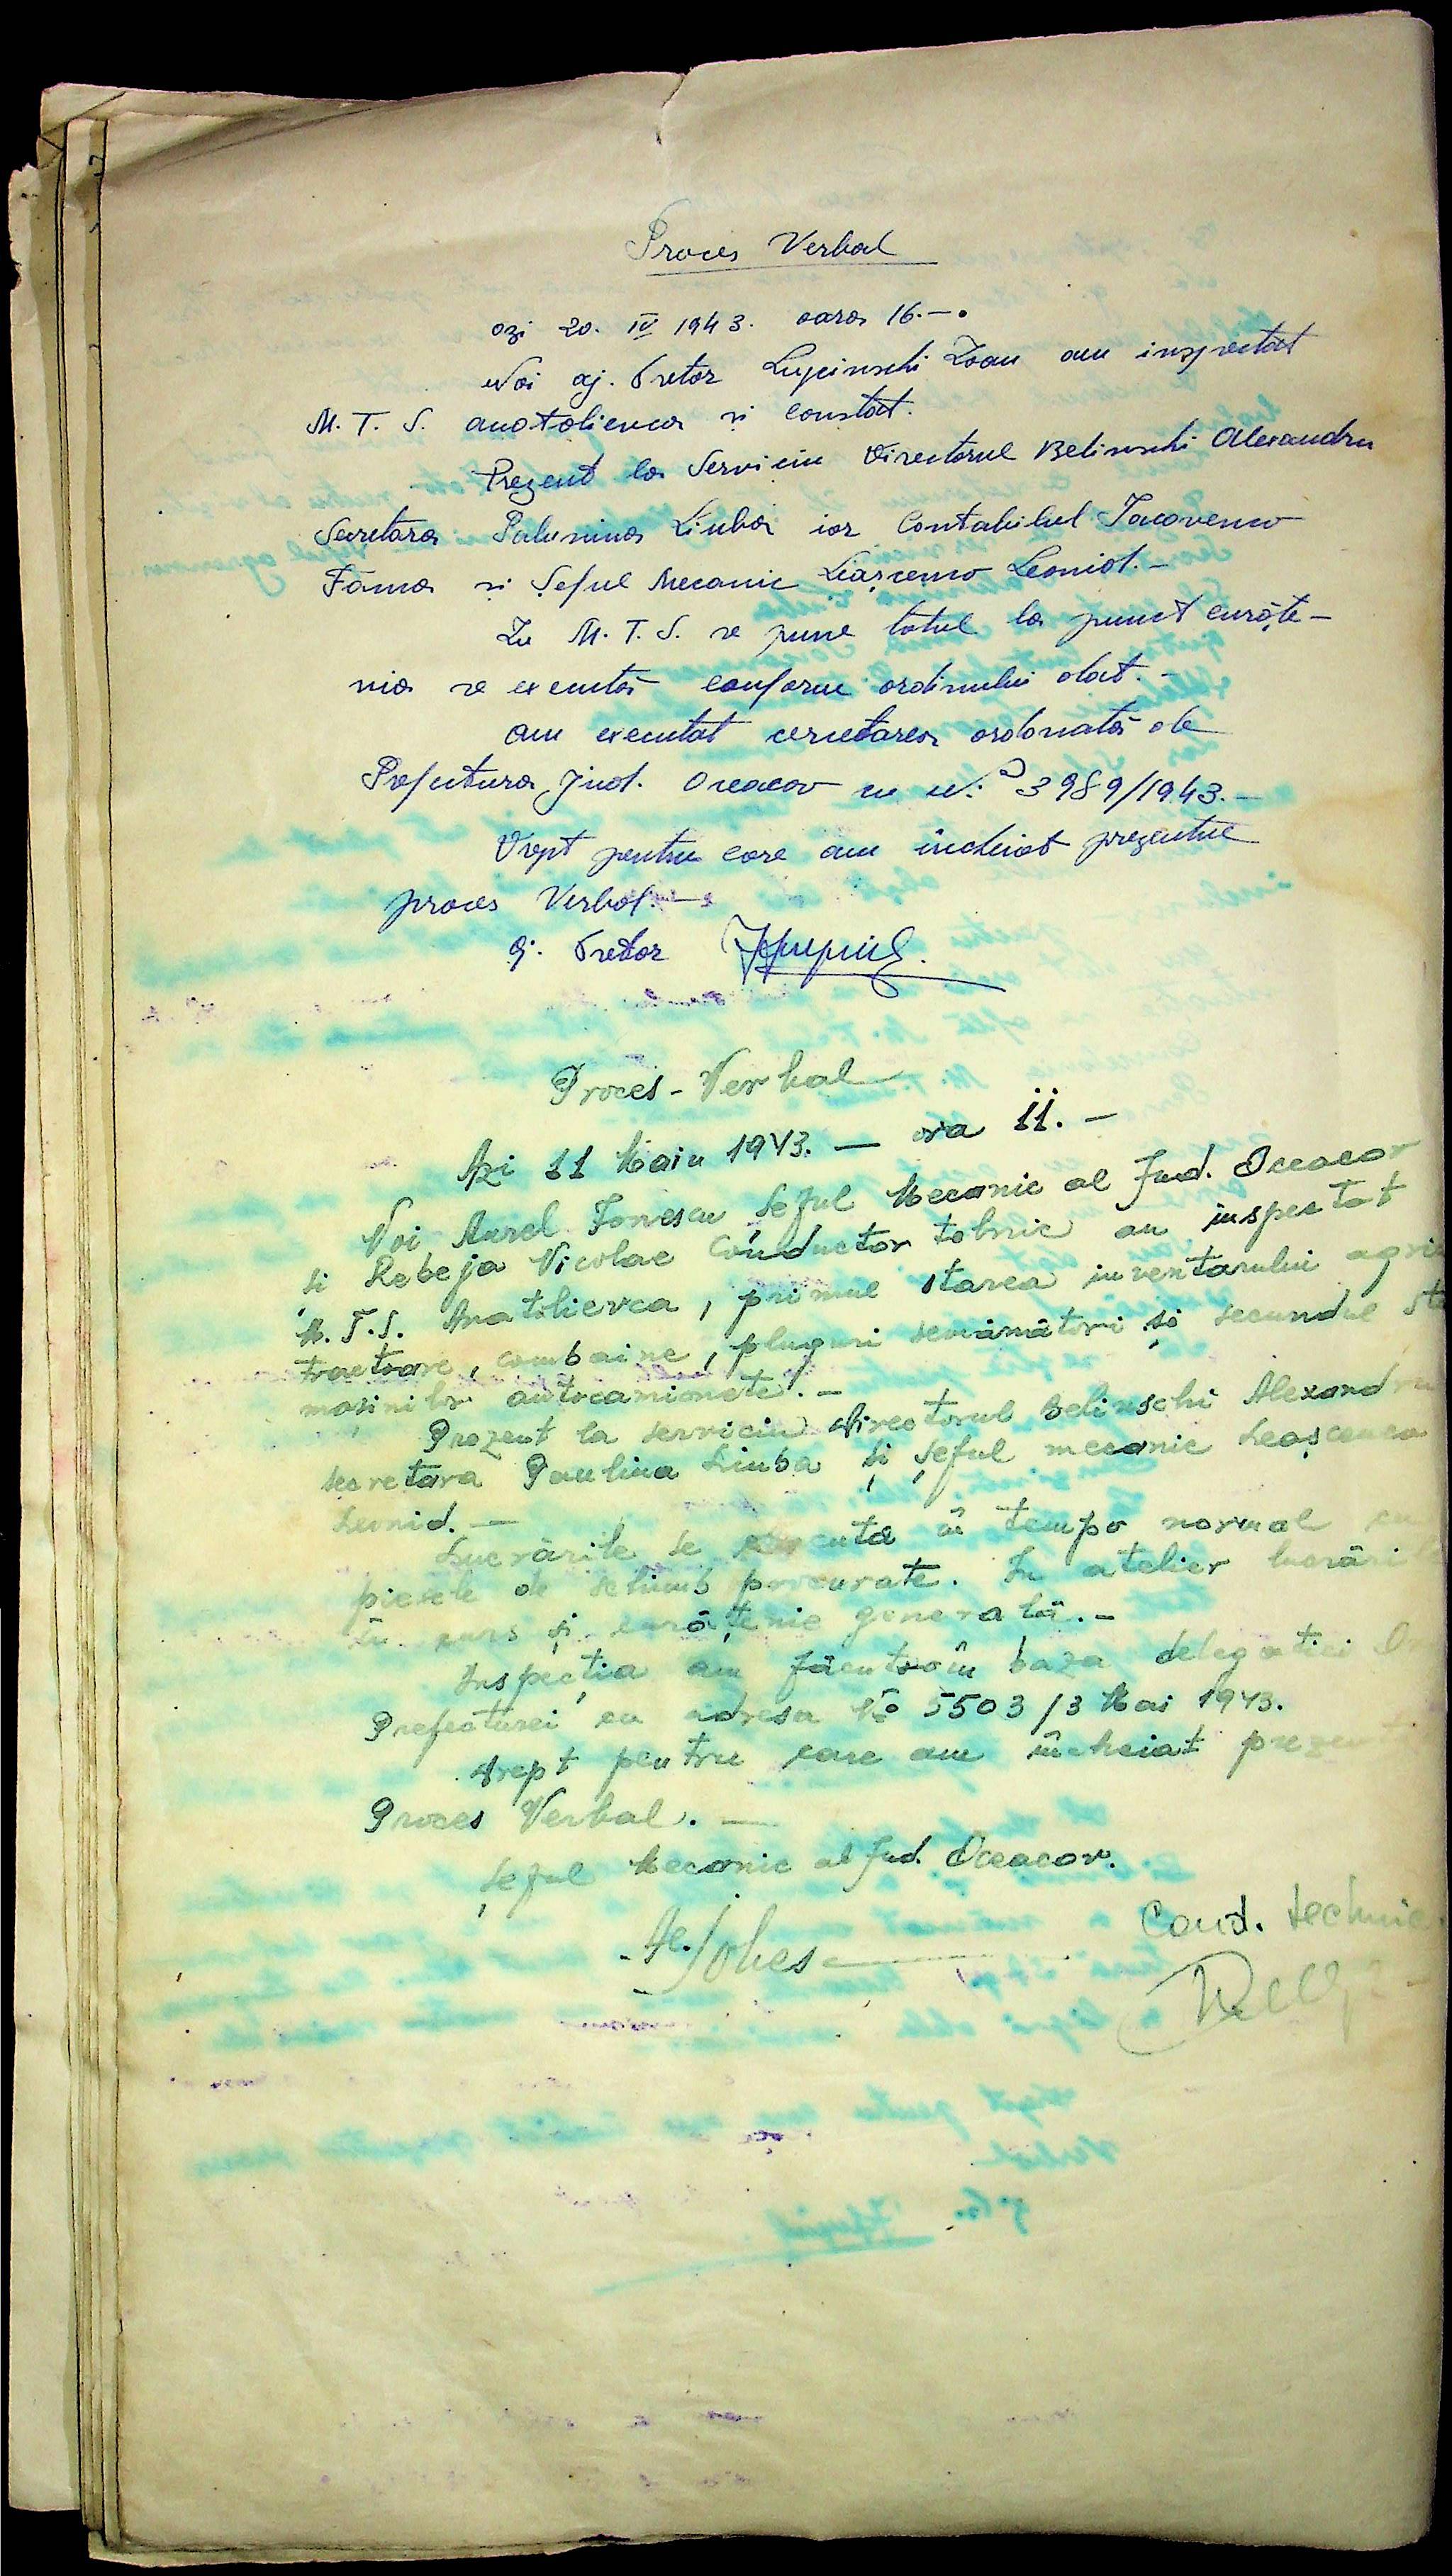 Proces Verbal
azi 20. IV 1943. oara 16.—.
Noi aj. Pretor Lupinschi Ioan am inspectat
M. T. S. anatolievca si constat.
Prezent la Serviciu Directorul Belinschi Alexandru
Secretara Palunina Liuba iar Contabilul Iacovenco
Foma si Șeful Mecanic Liașcenco Leonid.—
In M. T. S. se pune totul la punct curățe—
nia se execută conform ordinului dat.—
am executat cercetarea ordonată de
Prefectura Jud. Oceacov cu No 3989/1943.—
Drept pentru care am incheiat prezentul
proces Verbal.—
aj. Pretor
Proces-Verbal
Azi 11 Maiu 1943.— ora 11.—
Noi Aurel Ionescu Șeful Mecanic al Jud. Oceacov
și Rebeja Nicolae Conductor tehnic am inspectat
M.T.S. Anatolievca, primul starea inventarului agri
tractoare, combaine, pluguri semănători și secundul sta
mașinilor autocamionete.—
Prezent la serviciu Directorul Belinschi Alexandru
secretara Paulina Liuba și șeful mecanic Leașcenco
Leonid.—
Lucrările se execută în tempo normal cu
piesele de schimb procurate. In atelier lucrări
în curs și curățenie generală.—
Inspecția am făcut-o în baza delegatiei
Prefecturei cu adresa No 5503/3 Mai 1943.
Drept pentru care am încheiat prezent
Proces Verbal.—
Șeful Mecanic al Jud. Oceacov.
Cond. technic